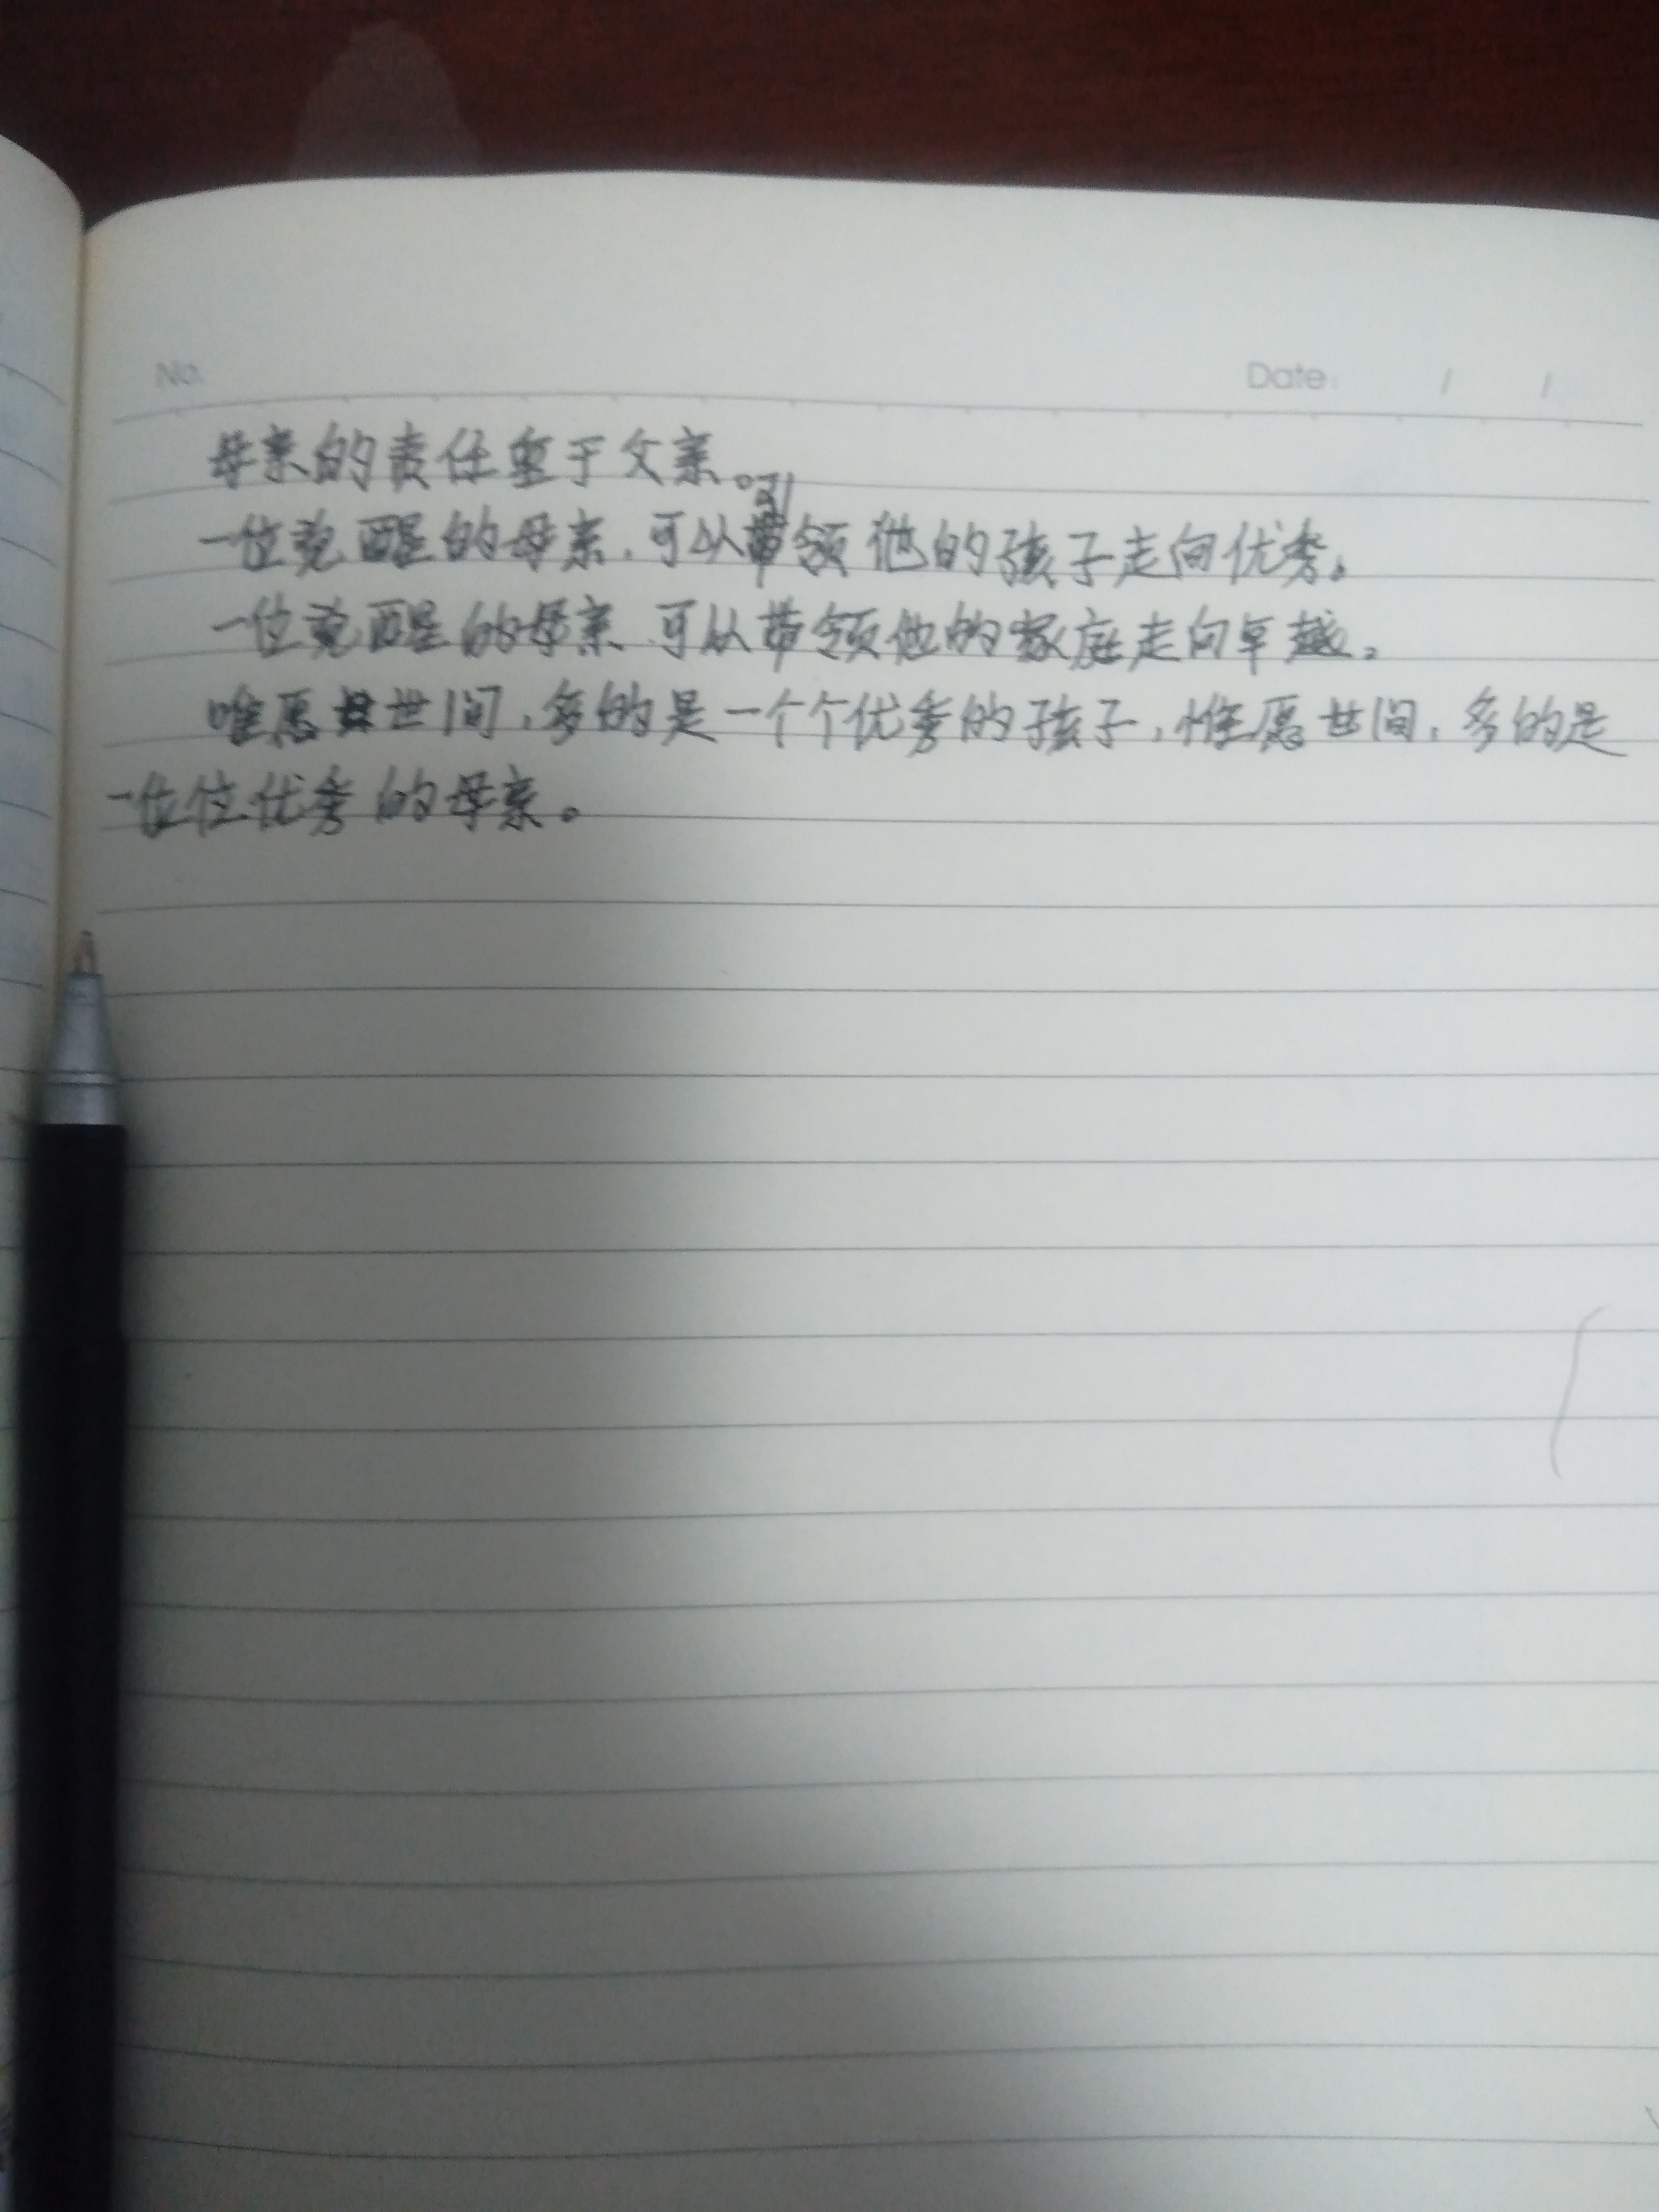 No.
Date: / /
母亲的责任重于父亲。
引
一位觉醒的母亲,可以带领他的孩子走向优秀。
一位觉醒的母亲,可以带领他的家庭走向卓越。
唯愿世间,多的是一个个优秀的孩子,惟愿世间,多的是
一位位优秀的母亲。